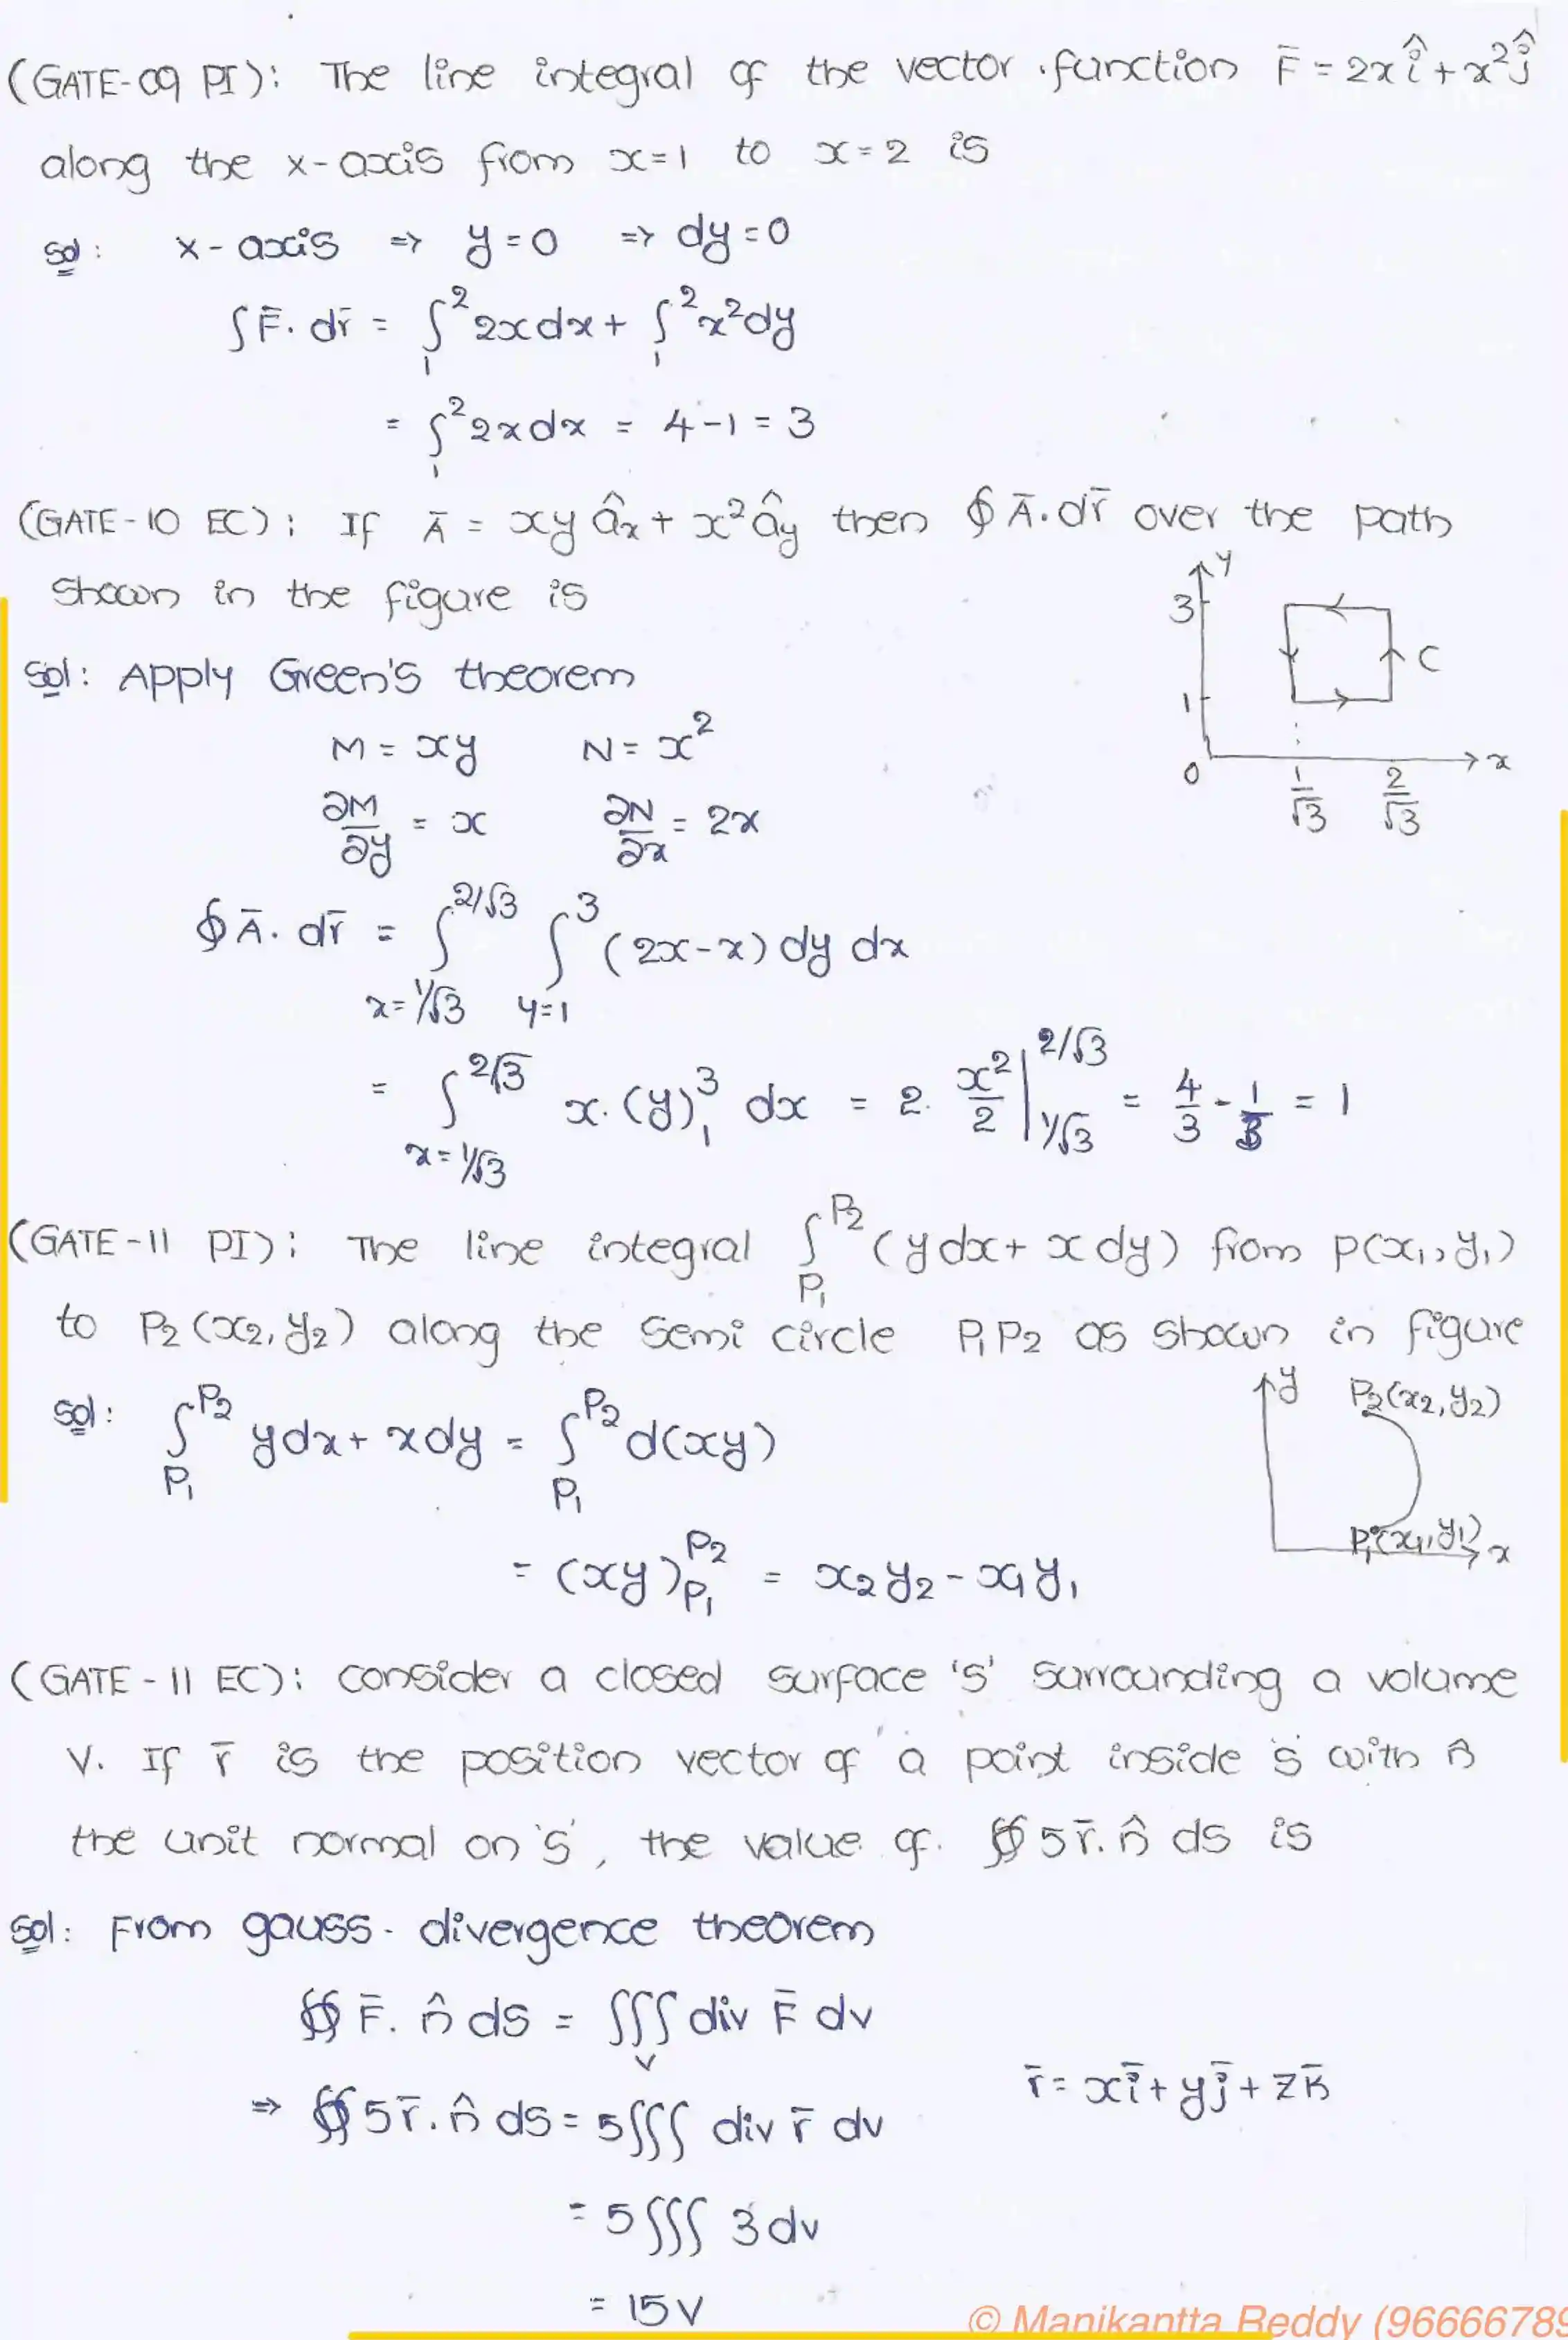 (GATE-09 PI): The line integral of the vector function F̄ = 2x î + x² ĵ
along the x-axis from x=1 to x=2 is
Sol: x-axis => y=0 => dy=0
∫F̄. dr̄ = ∫₁² 2x dx + ∫₁² x² dy
= ∫₁² 2x dx = 4-1 = 3
(GATE-10 EC): If Ā = xy âx + x² ây then ∮Ā.dr̄ over the path
shown in the figure is
y
3
C
1
0
1/√3
2/√3
x
Sol: Apply Green's theorem
M = xy N = x²
∂M/∂y = x ∂N/∂x = 2x
∮Ā. dr̄ = ∫_{x=1/√3}^{2/√3} ∫_{y=1}^{3} (2x-x) dy dx
= ∫_{x=1/√3}^{2/√3} x.(y)₁³ dx = 2. x²/2 |_{1/√3}^{2/√3} = 4/3 - 1/3 = 1
(GATE-11 PI): The line integral ∫_{P₁}^{P₂} (y dx + x dy) from P(x₁, y₁)
to P₂(x₂, y₂) along the semi circle P₁P₂ as shown in figure
y
P₂(x₂, y₂)
P₁(x₁, y₁)
x
Sol: ∫_{P₁}^{P₂} y dx + x dy = ∫_{P₁}^{P₂} d(xy)
= (xy)_{P₁}^{P₂} = x₂y₂ - x₁y₁
(GATE-11 EC): Consider a closed surface 'S' surrounding a volume
V. If r̄ is the position vector of a point inside 'S' with n̂
the unit normal on 'S', the value of ∯ 5r̄. n̂ ds is
Sol: From gauss-divergence theorem
∯ F̄. n̂ ds = ∭_V div F̄ dv
=> ∯ 5r̄. n̂ ds = 5∭ div r̄ dv
r̄ = xī + yj̄ + zk̄
= 5∭ 3 dv
= 15V
© Manikantta Reddy (96666789